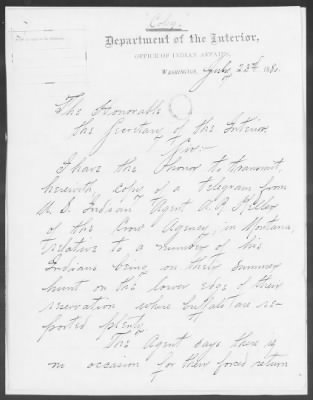 Copy.
Department of the Interior,
OFFICE OF INDIAN AFFAIRS,
WASHINGTON, July 23th 1880.
The Honorable
the Secretary of the Interior
Sir:-
I have the honor to transmit,
herewith, copy of a telegram from
U. S. Indian Agent A. R. Keller
of the Crow Agency, in Montana,
relative to a number of his
Indians being on their summer
hunt on the lower edge of their
reservation where buffalo are re-
ported plenty.
The Agent says there is
no occasion for their forced return